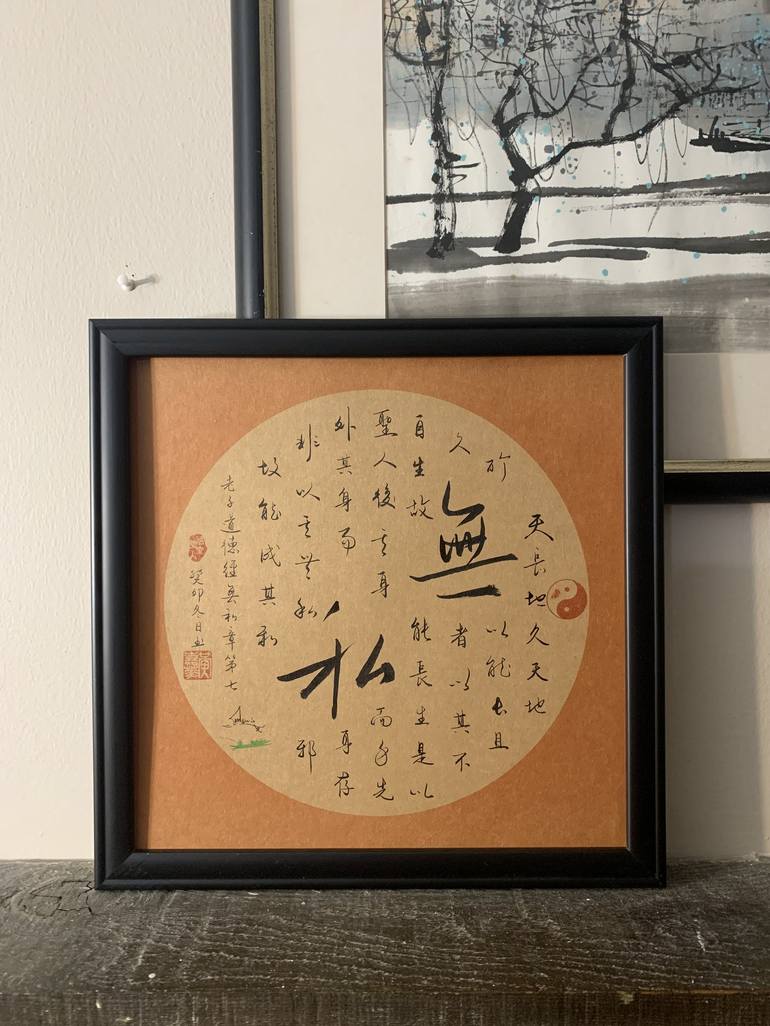 天長地久天地
所以能長且
久者以其不
無
自生故能長生是以
聖人後其身而身先
私
外其身而身存
非以其無私邪
故能成其私
老子道德經無私章第七
癸卯冬日